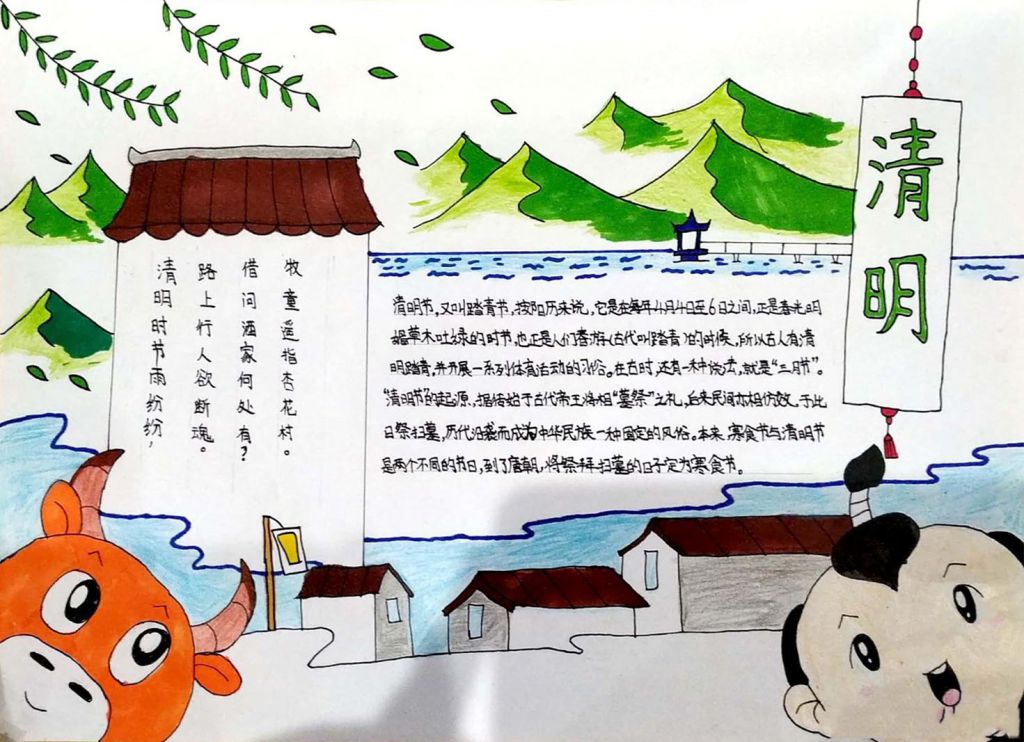 清明
清明时节雨纷纷,
路上行人欲断魂。
借问酒家何处有?
牧童遥指杏花村。
清明节,又叫踏青节,按阳历来说,它是在每年4月4日至6日之间,正是春光明
媚草木吐绿的时节,也正是人们春游(古代叫踏青)的时候,所以古人有清
明踏青,并开展一系列体育活动的习俗。在古时,还有一种说法,就是“三月节”。
“清明节”的起源,据传始于古代帝王将相“墓祭”之礼,后来民间亦相仿效,于此
日祭扫墓,历代沿袭而成为中华民族一种固定的风俗。本来,寒食节与清明节
是两个不同的节日,到了唐朝,将祭拜扫墓的日子定为寒食节。